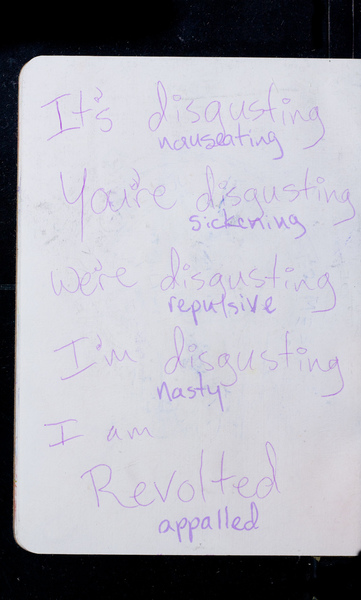 It's disgusting
nauseating
You're disgusting
sickening
we're disgusting
repulsive
I'm disgusting
nasty
I am
Revolted
appalled